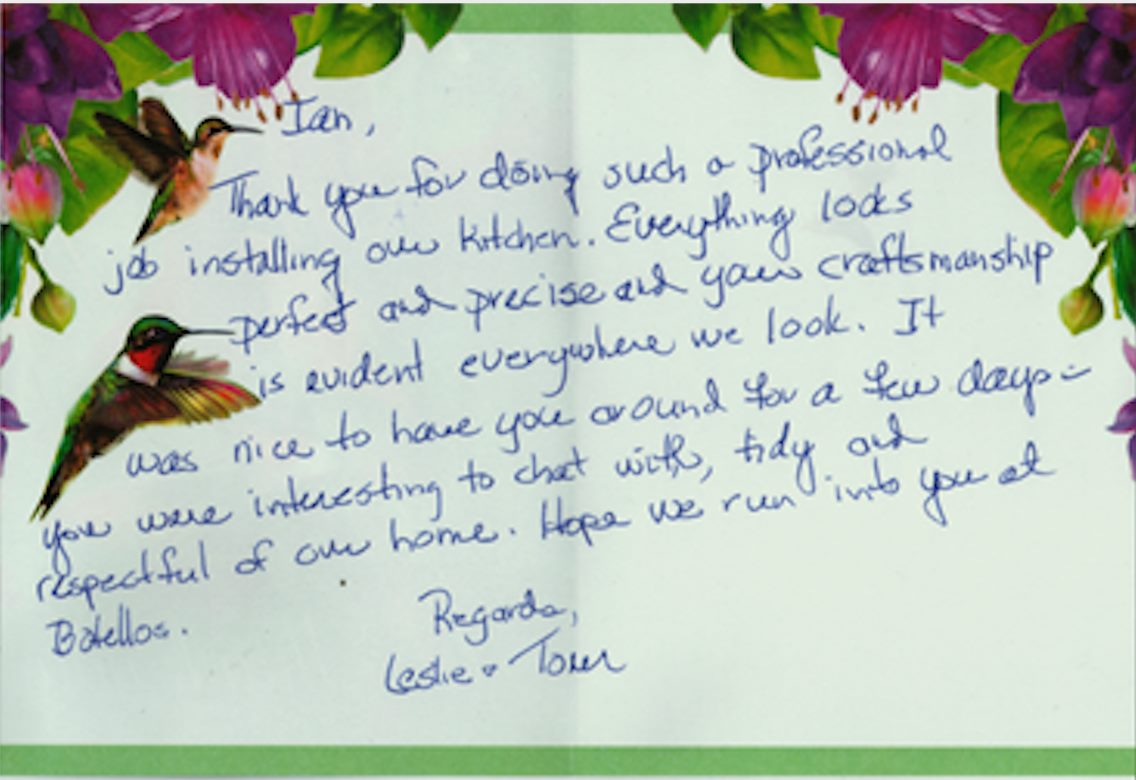 Ian,
Thank you for doing such a professional
job installing our kitchen. Everything looks
perfect and precise and your craftsmanship
is evident everywhere we look. It
was nice to have you around for a few days -
you were interesting to chat with, tidy and
respectful of our home. Hope we run into you at
Botellos.
Regards,
Leslie +